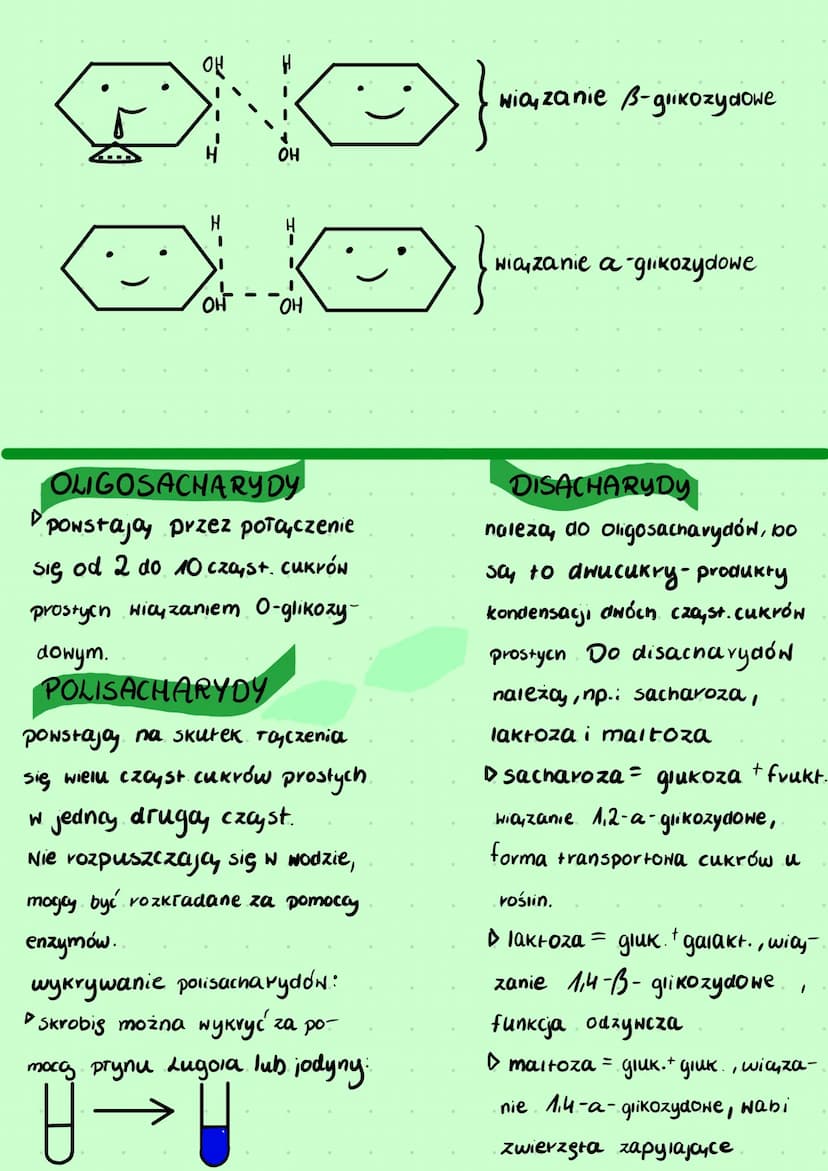 OH H
wiązanie β-glikozydowe
H OH
H H
wiązanie α-glikozydowe
OH OH
OLIGOSACHARYDY
▷ powstają przez połączenie
się od 2 do 10 cząst. cukrów
prostych wiązaniem O-glikozy-
dowym.
POLISACHARYDY
powstają na skutek łączenia
się wielu cząst. cukrów prostych
w jedną drugą cząst.
Nie rozpuszczają się w wodzie,
mogą być rozkładane za pomocą
enzymów.
wykrywanie polisacharydów:
▷ skrobię można wykryć za po-
mocą płynu Lugola lub jodyny:
DISACHARYDY
należą do oligosacharydów, bo
są to dwucukry - produkty
kondensacji dwóch cząst. cukrów
prostych. Do disacharydów
należą, np.: sacharoza,
laktoza i maltoza
▷ sacharoza = glukoza + frukt.
wiązanie 1,2-α-glikozydowe,
forma transportowa cukrów u
roślin.
▷ laktoza = gluk. + galakt., wią-
zanie 1,4-β-glikozydowe,
funkcja odżywcza
▷ maltoza = gluk. + gluk., wiąza-
nie 1,4-α-glikozydowe, wabi
zwierzęta zapylające